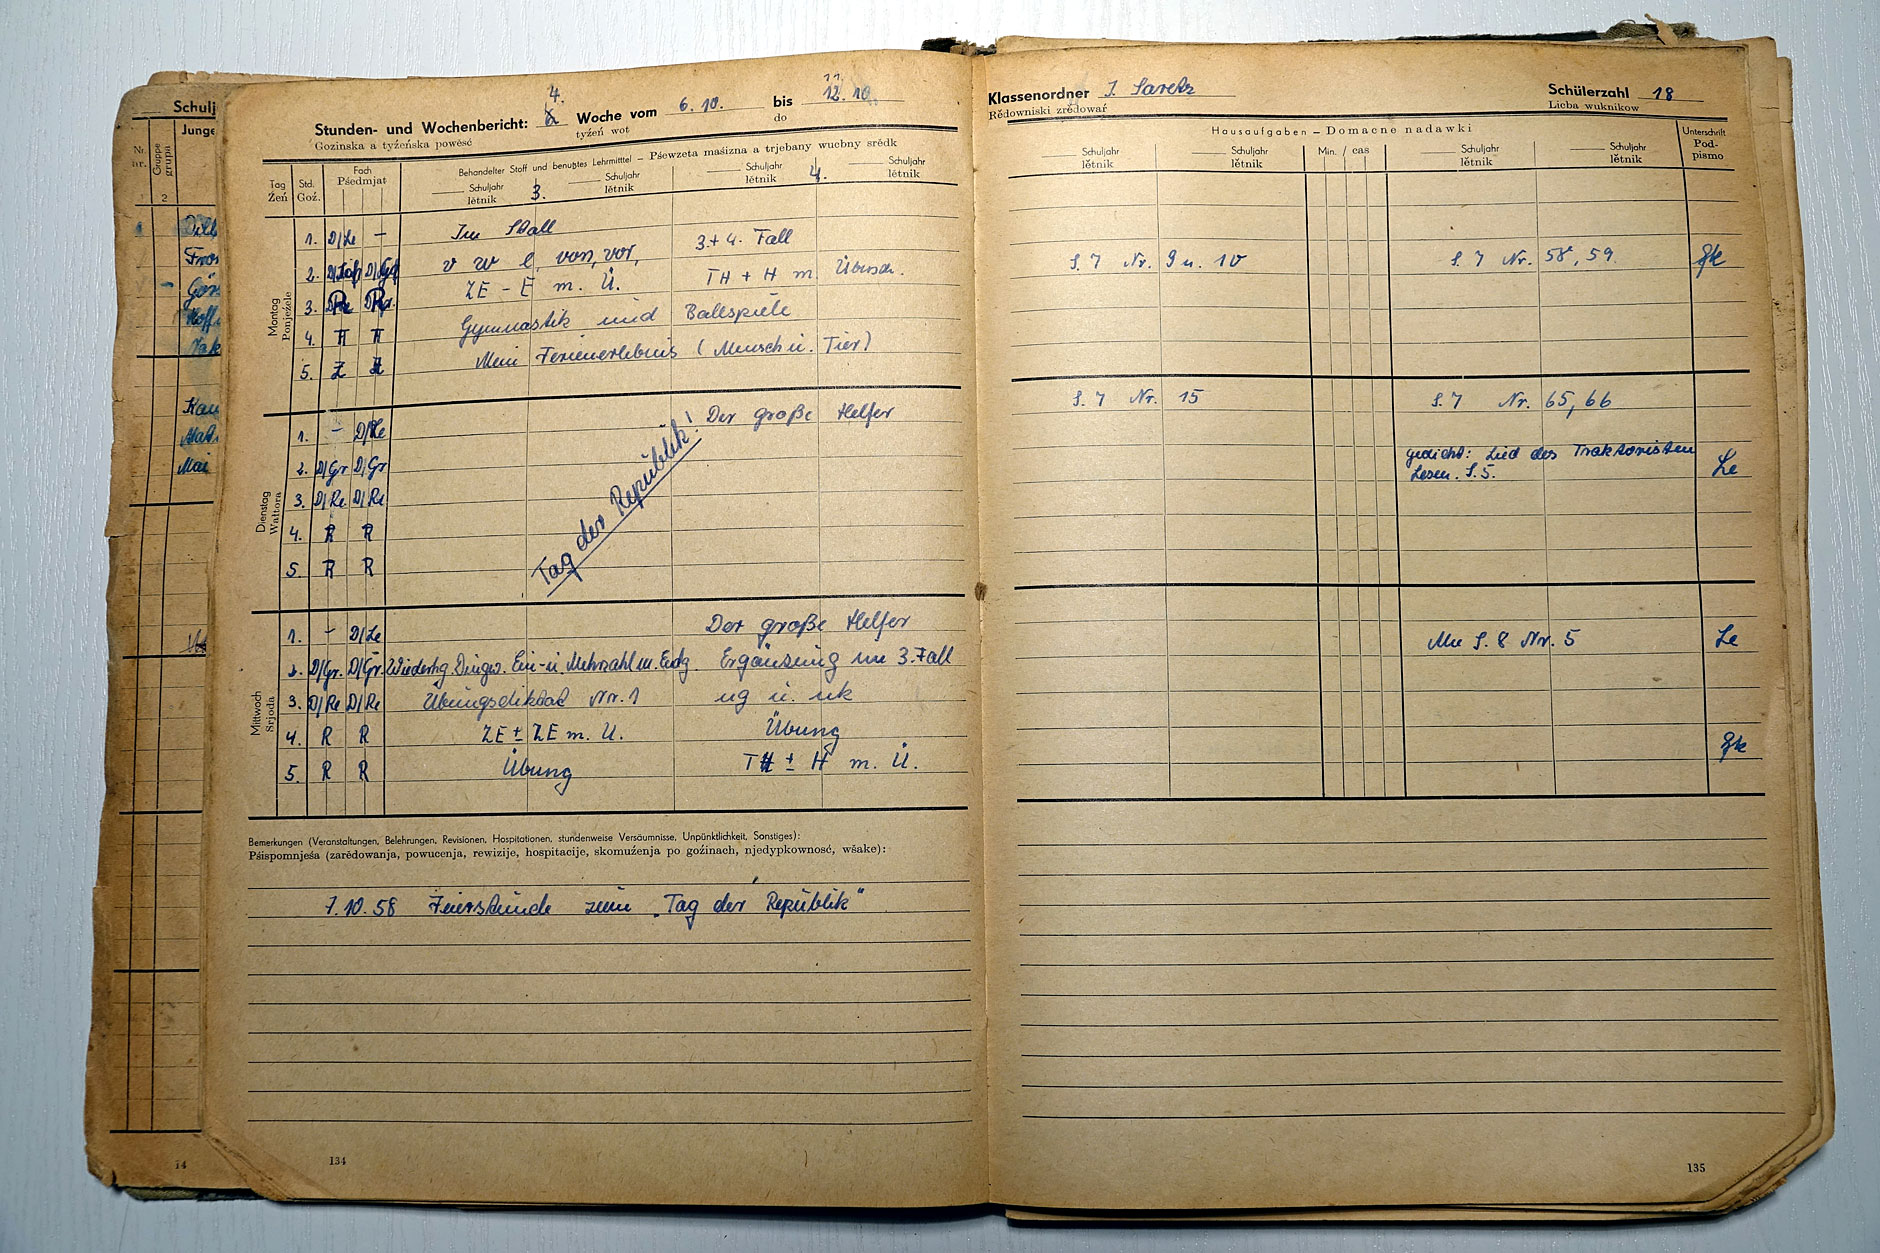 Schulj
Junge
Nr.
nr.
Gruppe
grupa
2
14
4.
Stunden- und Wochenbericht: Woche vom 6.10. bis 12.10.
11.
Gozinska a tyźeńska powěsć tyźeń wot do
Tag
Źeń
Std.
Goź.
Fach
Pśedmjat
Behandelter Stoff und benußtes Lehrmitttel – Pśewzeta maśizna a trjebany wucbny srědk
Schuljahr Schuljahr Schuljahr Schuljahr
lětnik 3. lětnik lětnik 4. lětnik
Montag
Ponjeźele
1. D/Le – Im Stall
2. v w l, von, vor, 3.+4. Fall
3. ZE – E m. Ü. TH + H m. Übersch.
4. H H Gymnastik und Ballspiele
5. Z Z Mein Ferienerlebnis (Mensch u. Tier)
Dienstag
Wałtora
1. – D/Le Der große Helfer
2. D/Gr D/Gr
3. D/Re D/Re
4. R R
5. R R
Tag der Republik!
Mittwoch
Srjoda
1. – D/Le Der große Helfer
2. D/Gr. D/Gr. Wiederhg. Dingw. Ein- u. Mehrzahl m. Endg. Ergänzung im 3. Fall
3. D/Re D/Re Übungsdiktat Nr. 1 ng u. nk
4. R R ZE ± ZE m. Ü. Übung
5. R R Übung TH ± H m. Ü.
Bemerkungen (Veranstaltungen, Belehrungen, Revisionen, Hospitationen, stundenweise Versäumnisse, Unpünktlichkeit, Sonstiges):
Pśispomnjeśa (zarědowanja, powucenja, rewizije, hospitacije, skomuźenja po goźinach, njedypkownosć, wšake):
7.10.58 Feierstunde zum "Tag der Republik"
134
Klassenordner J. Saretz Schülerzahl 18
Rědowniski zrědowaŕ Licba wuknikow
Hausaufgaben – Domacne nadawki
Unterschrift
Pod-
pismo
Schuljahr Schuljahr Min. / cas Schuljahr Schuljahr
lětnik lětnik lětnik lětnik
S. 7 Nr. 9 u. 10 S. 7 Nr. 58, 59.
S. 7 Nr. 15 S. 7 Nr. 65, 66
Gedicht: Lied des Traktoristen
Lesen. S. 5. Le
S. 8 Nr. 5 Le
135